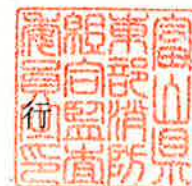 富山県
東部消防
組合監査
委員之印
行